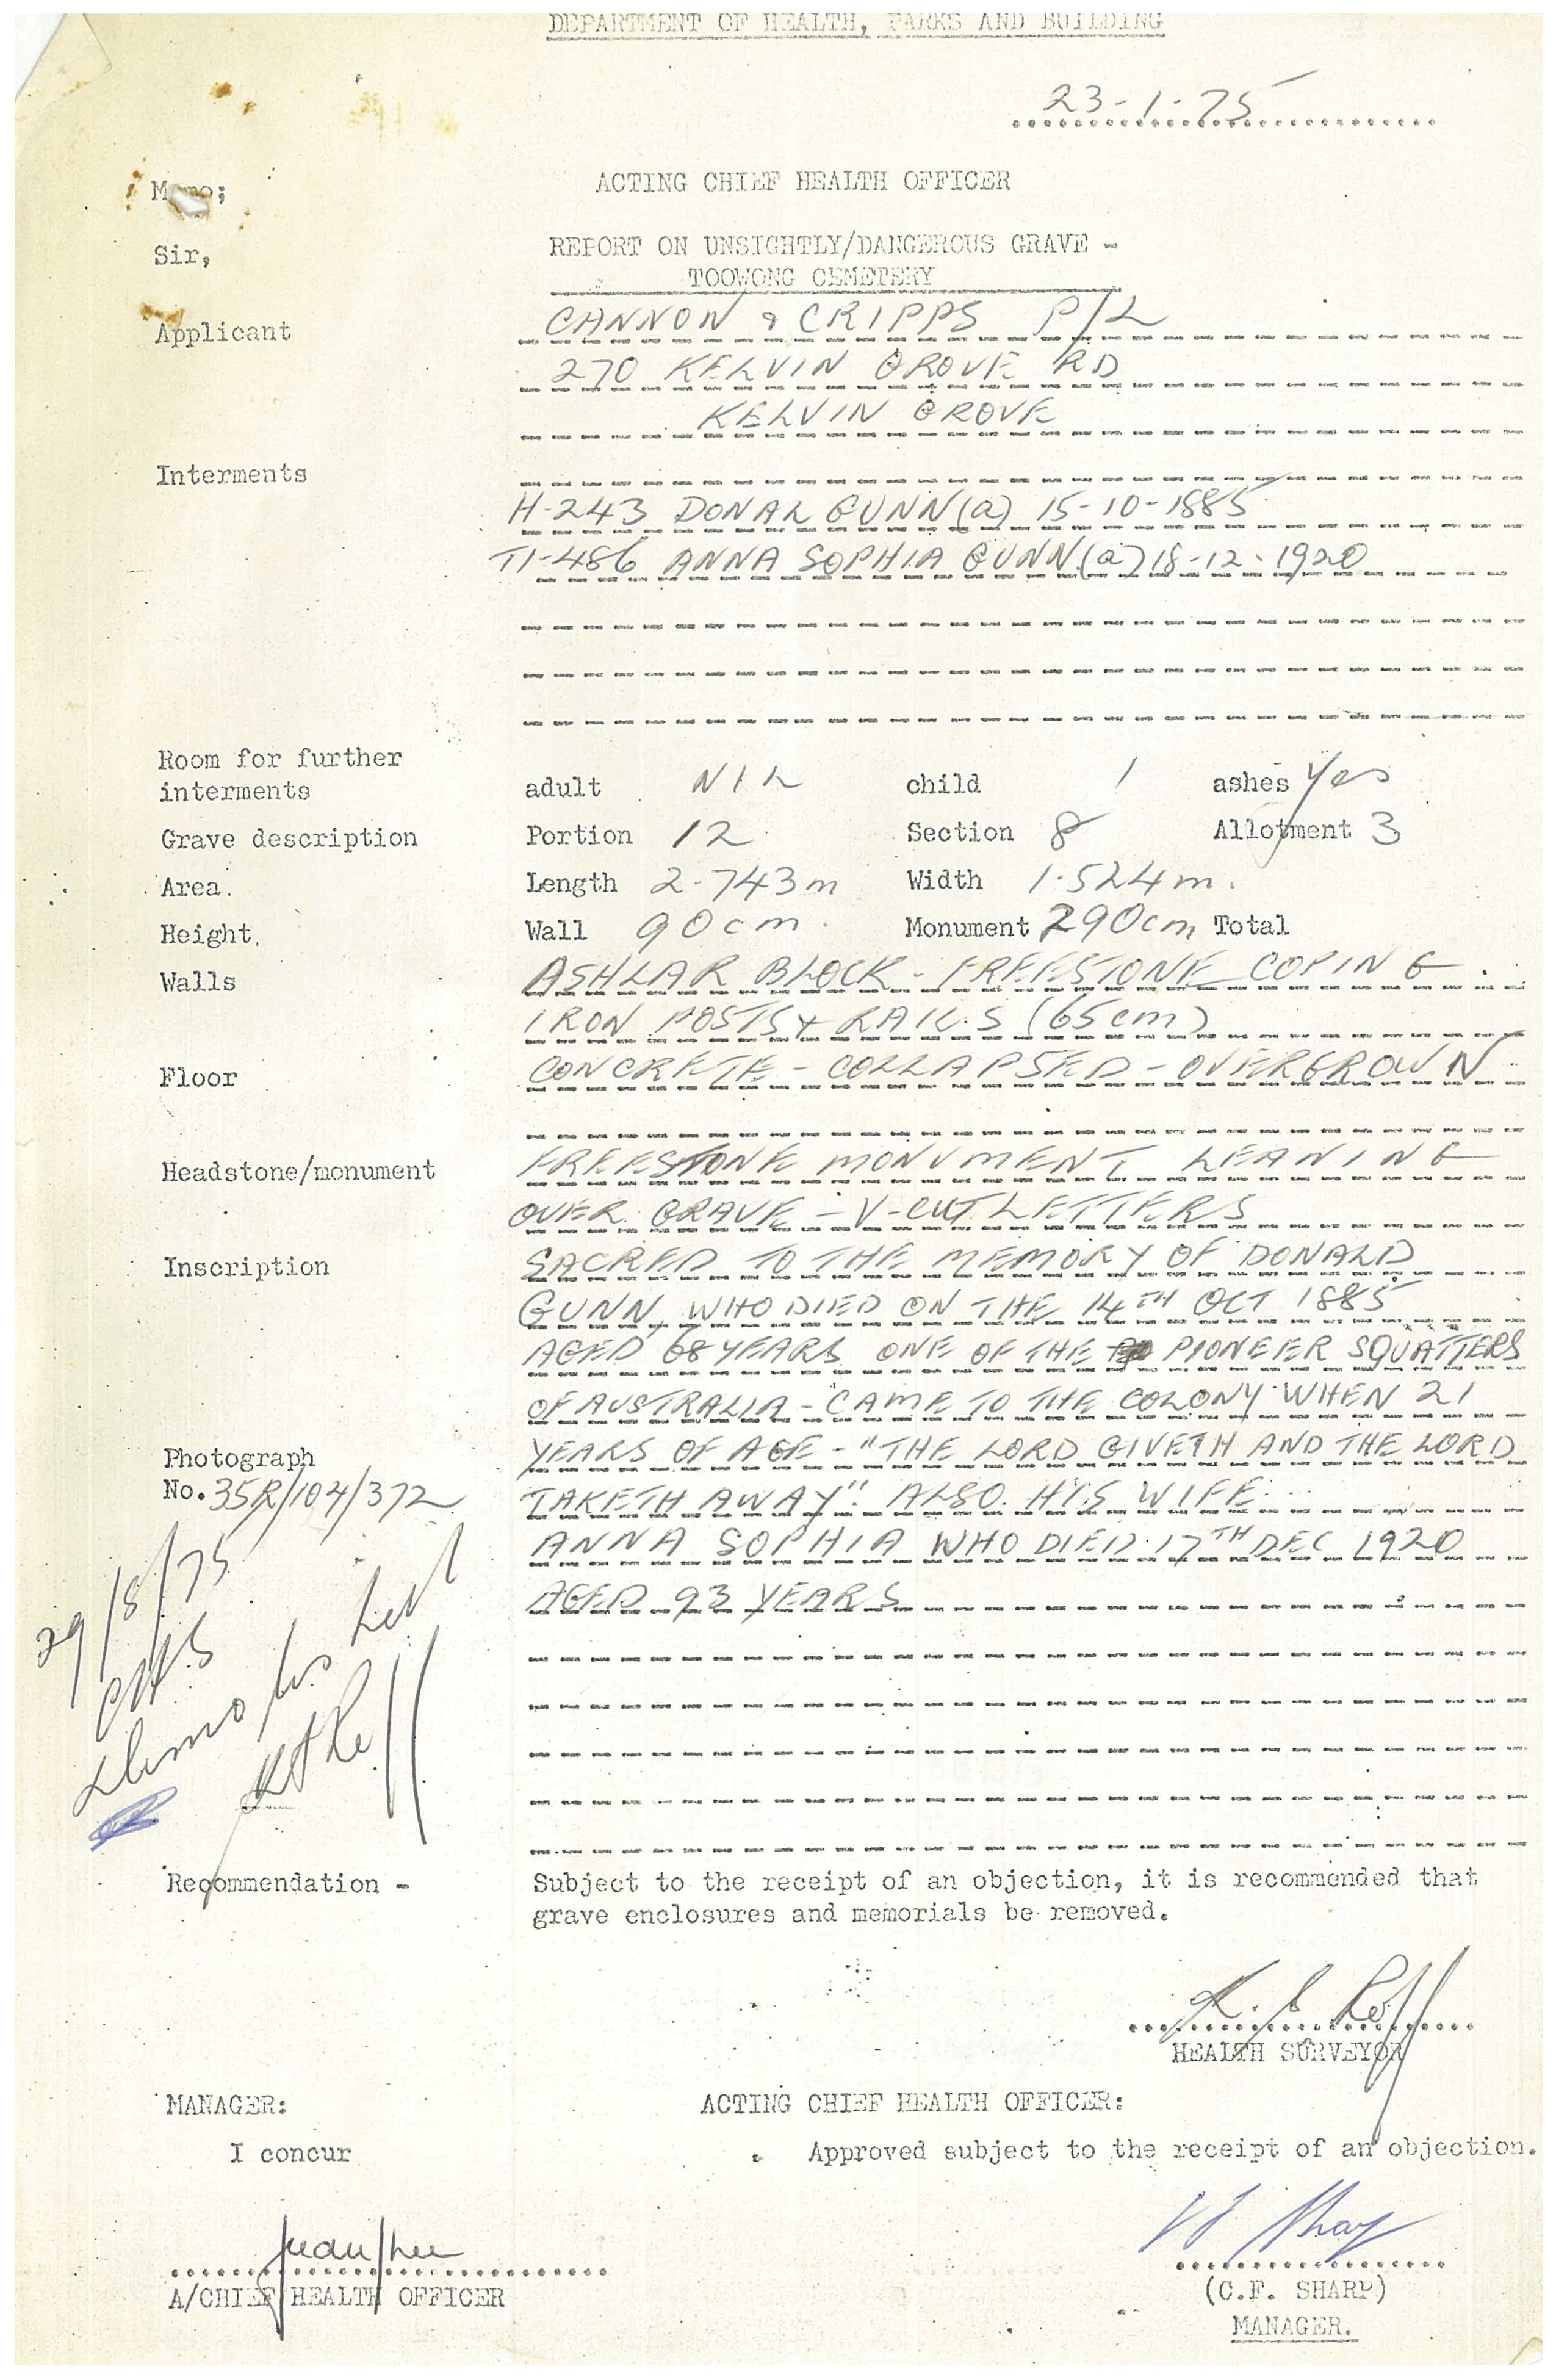 DEPARTMENT OF HEALTH, PARKS AND BUILDING
23-1-75
Memo;
ACTING CHIEF HEALTH OFFICER
Sir,
REPORT ON UNSIGHTLY/DANGEROUS GRAVE -
TOOWONG CEMETERY
Applicant CANNON & CRIPPS P/L
270 KELVIN GROVE RD
KELVIN GROVE
Interments
H-243 DONAL GUNN (a) 15-10-1885
T1-486 ANNA SOPHIA GUNN (a) 18-12-1920
Room for further
interments adult NIL child 1 ashes Yes
Grave description Portion 12 Section 8 Allotment 3
Area. Length 2.743m Width 1.524m.
Height. Wall 90cm. Monument 290cm Total
Walls ASHLAR BLOCK - FREESTONE COPING.
IRON POSTS & RAILS (65cm)
Floor CONCRETE - COLLAPSED - OVERGROWN
Headstone/monument FREESTONE MONUMENT LEANING
OVER GRAVE - V-CUT LETTERS
Inscription SACRED TO THE MEMORY OF DONALD
GUNN, WHO DIED ON THE 14TH OCT 1885
AGED 68 YEARS ONE OF THE PIONEER SQUATTERS
OF AUSTRALIA - CAME TO THE COLONY WHEN 21
YEARS OF AGE - "THE LORD GIVETH AND THE LORD
Photograph
No. 35R/104/372 TAKETH AWAY". ALSO HIS WIFE
ANNA SOPHIA WHO DIED 17TH DEC 1920
AGED 93 YEARS
29/8/75
Recommendation - Subject to the receipt of an objection, it is recommended that
grave enclosures and memorials be removed.
HEALTH SURVEYOR
MANAGER: ACTING CHIEF HEALTH OFFICER:
I concur Approved subject to the receipt of an objection.
A/CHIEF HEALTH OFFICER
(C.F. SHARP)
MANAGER.